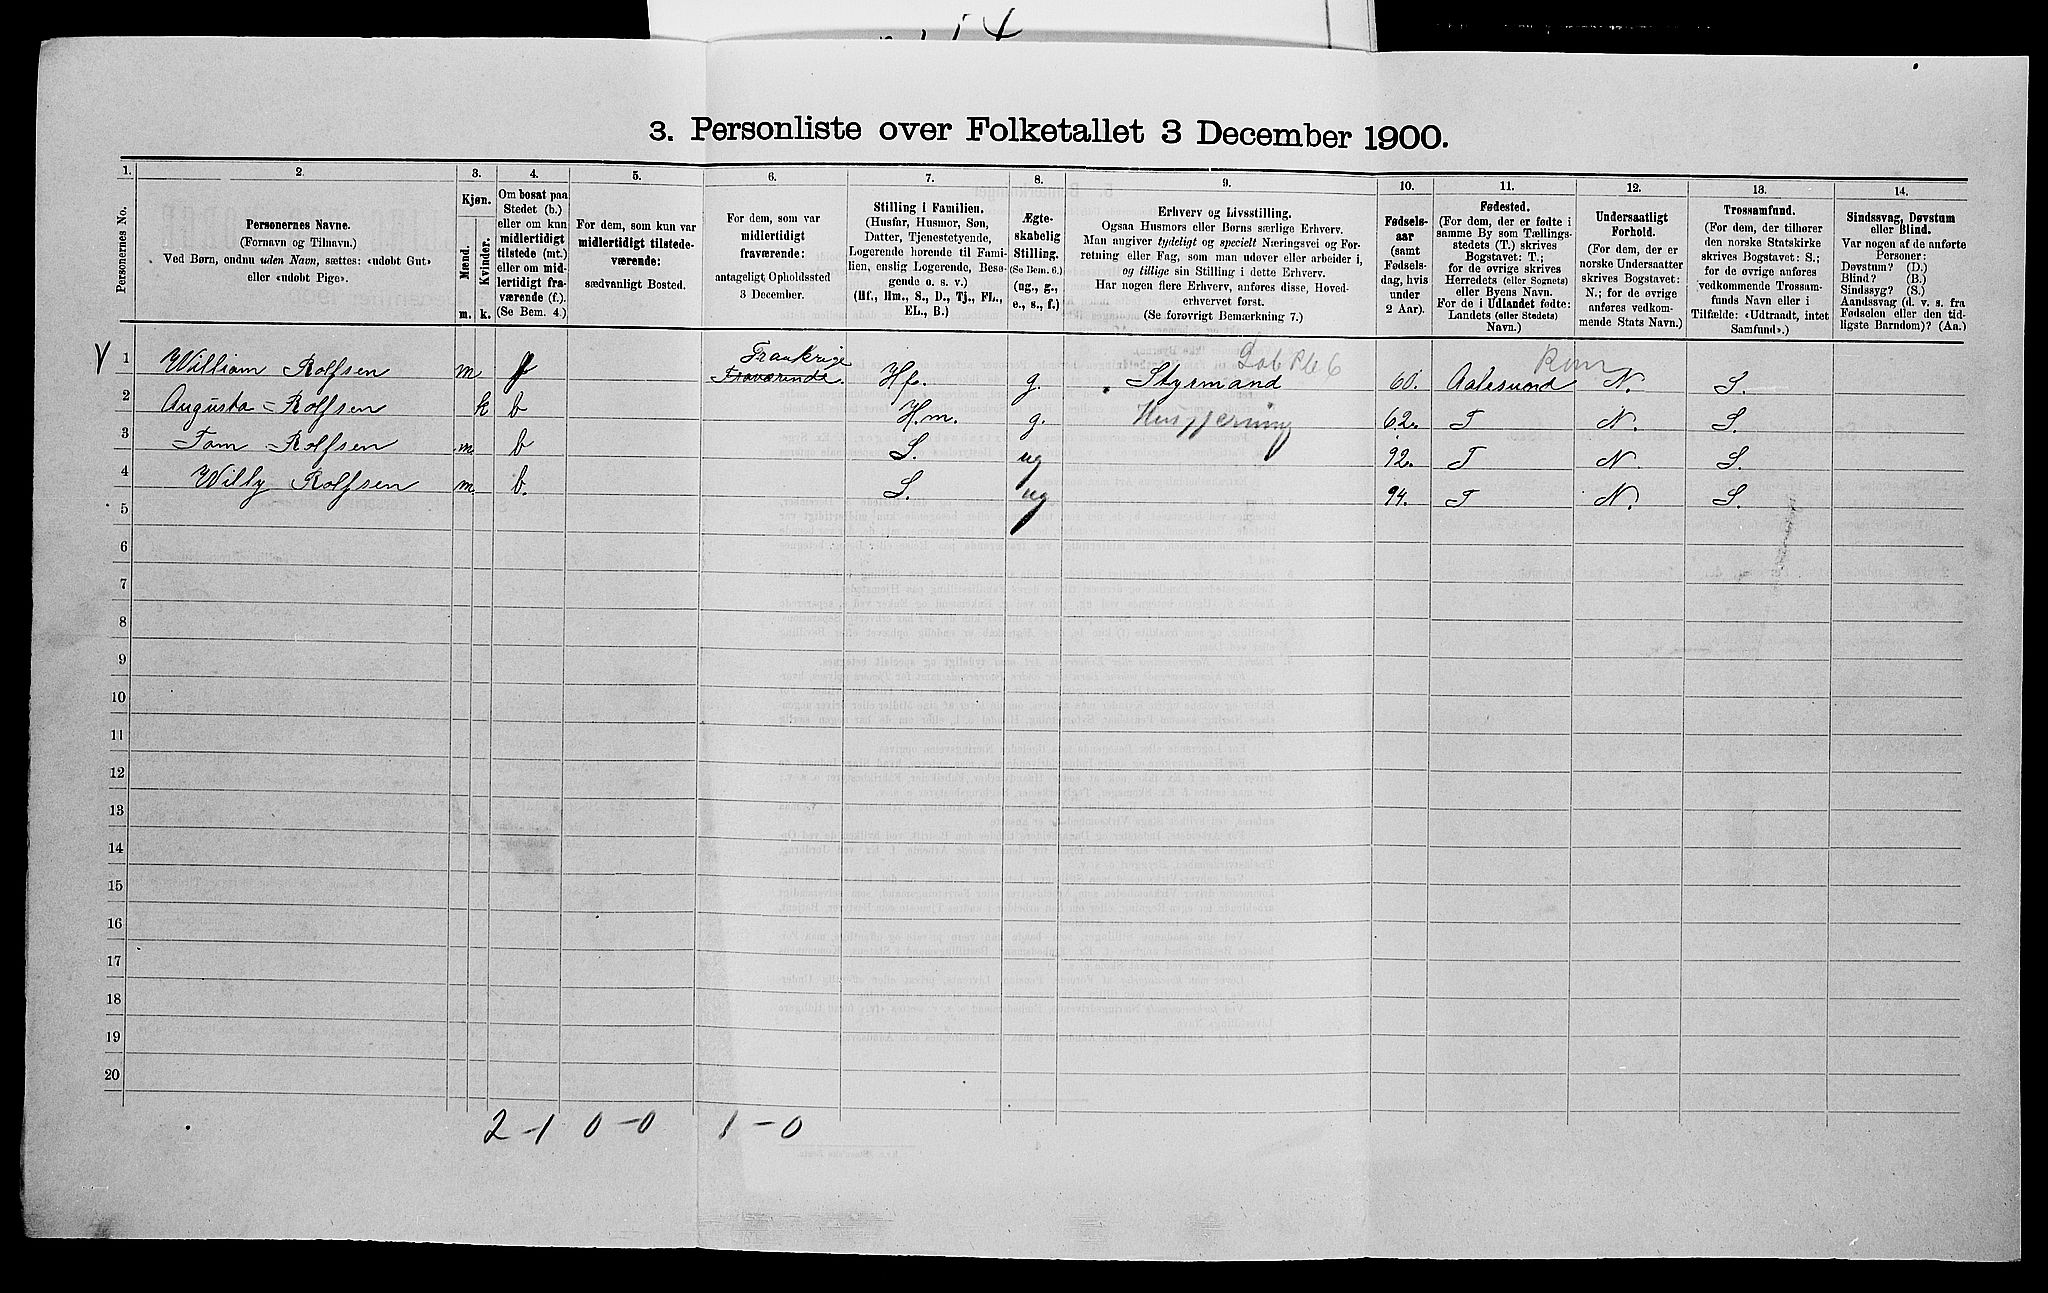 3. Personliste over Folketallet 3 December 1900.
1. 2. 3. 4. 5. 6. 7. 8. 9. 10. 11. 12. 13. 14.
Personernes No.
Personernes Navne.
(Fornavn og Tilnavn.)
Ved Børn, endnu uden Navn, sættes: «udøbt Gut»
eller «udøbt Pige».
Kjøn.
Mænd.
Kvinder.
m. k.
Om bosat paa
Stedet (b.)
eller om kun
midlertidigt
tilstede (mt.)
eller om mid-
lertidigt fra-
værende (f.).
(Se Bem. 4.)
For dem, som kun var
midlertidigt tilstede-
værende:
sædvanligt Bosted.
For dem, som var
midlertidigt
fraværende:
antageligt Opholdssted
3 December.
Stilling i Familien.
(Husfar, Husmor, Søn,
Datter, Tjenestetyende,
Logerende hørende til Fami-
lien, enslig Logerende, Besø-
gende o. s. v.)
(Hf., Hm., S., D., Tj., FL.,
EL., B.)
Ægte-
skabelig
Stilling.
(Se Bem. 6.)
(ug., g.,
e., s., f.)
Erhverv og Livsstilling.
Ogsaa Husmors eller Børns særlige Erhverv.
Man angiver tydeligt og specielt Næringsvei og For-
retning eller Fag, som man udøver eller arbeider i,
og tillige sin Stilling i dette Erhverv.
Har nogen flere Erhverv, anføres disse, Hoved-
erhvervet først.
(Se forøvrigt Bemærkning 7.)
Fødsels-
aar
(samt
Fødsels-
dag, hvis
under
2 Aar).
Fødested.
(For dem, der er fødte i
samme By som Tællings-
stedets (T.) skrives
Bogstavet: T.;
for de øvrige skrives
Herredets (eller Sognets)
eller Byens Navn.
For de i Udlandet fødte:
Landets (eller Stedets)
Navn.)
Undersaatligt
Forhold.
(For dem, der er
norske Undersaatter
skrives Bogstavet:
N.; for de øvrige
anføres vedkom-
mende Stats Navn.)
Trossamfund.
(For dem, der tilhører
den norske Statskirke
skrives Bogstavet: S.;
for de øvrige anføres
vedkommende Trossam-
funds Navn eller i
Tilfælde: «Udtraadt, intet
Samfund».)
Sindssvag, Døvstum
eller Blind.
Var nogen af de anførte
Personer:
Døvstum? (D.)
Blind? (B.)
Sindssyg? (S.)
Aandssvag (d. v. s. fra
Fødselen eller den tid-
ligste Barndom)? (Aa.)
V 1 William Rolfsen m f Frankrige Fraværende. Hf. g. Styrmand 60. Aalesund N. S.
2 Augusta Rolfsen k b Hm. g. 62. T N. S.
3 Tom Rolfsen m b S. ug 92. T N. S.
4 Willy Rolfsen m b. S. ug 94. T N. S.
5
6
7
8
9
10
11
12
13
14
15
16
17
18
19
20
2-1 0-0 1-0